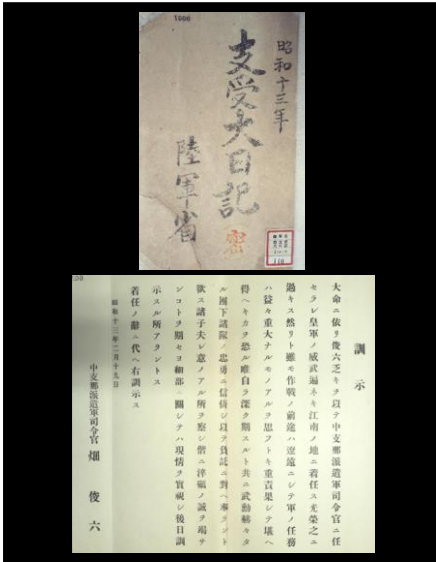 1006
昭和十三年
支受大日記
密
陸軍省
訓示
大命ニ依リ俊六乏キヲ以テ中支那派遣軍司令官ニ任
セラレ皇軍ノ威武遍ネキ江南ノ地ニ着任ス光榮之ニ
過キス然リト雖モ作戰ノ前途ハ遼遠ニシテ軍ノ任務
ハ益々重大ナルモノアルヲ思フトキ重責果シテ堪ヘ
得ヘキカヲ恐ル唯自ラ深ク期スルト共ニ
ル麾下諸隊ノ忠勇ニ信倚シ以テ負託ニ對ヘ奉ラント
欲ス諸子夫レ意ノアル所ヲ察シ
ンコトヲ期セヨ細部ニ關シテハ現情ヲ實視シ後日訓
示スル所アラントス
着任ノ辭ニ代ヘ右訓示ス
昭和十三年二月十九日
中支那派遣軍司令官 畑 俊六